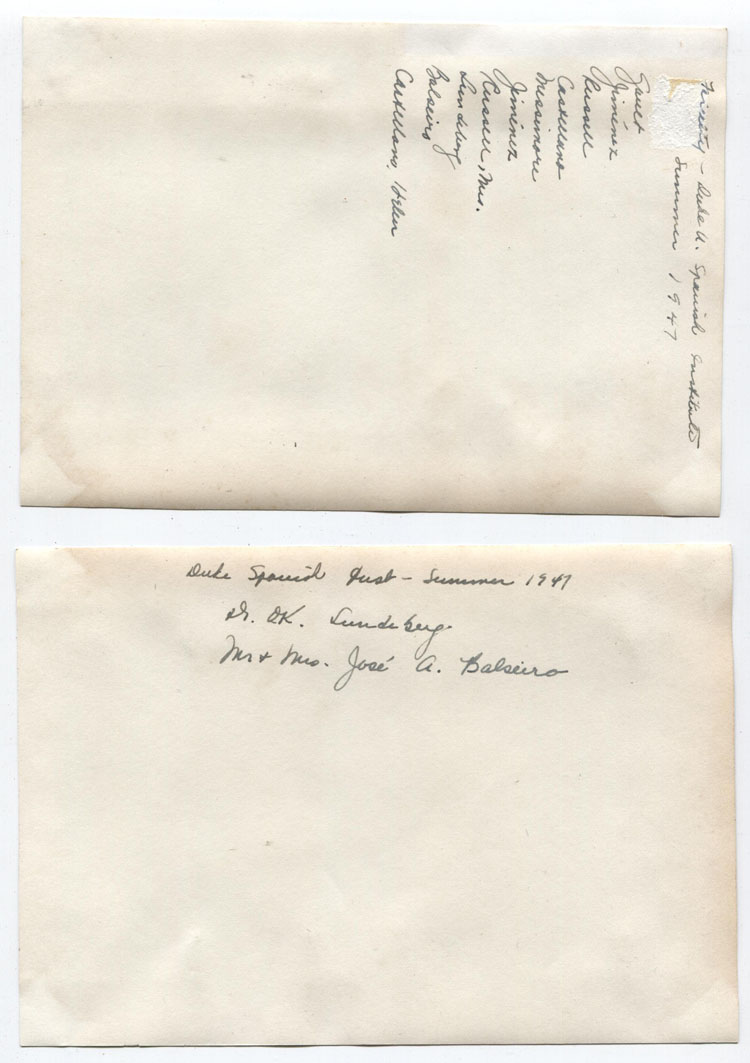 Faculty - Duke U. Spanish Institute
Summer 1947
Gault
Jiménez
Russell
Castellano
Missimore
Jiménez
Russell, Mrs.
Lundeberg
Balseiro
Castellano, Helen
Duke Spanish Inst - Summer 1947
Dr. O.K. Lundeberg
Mr & Mrs. José A. Balseiro